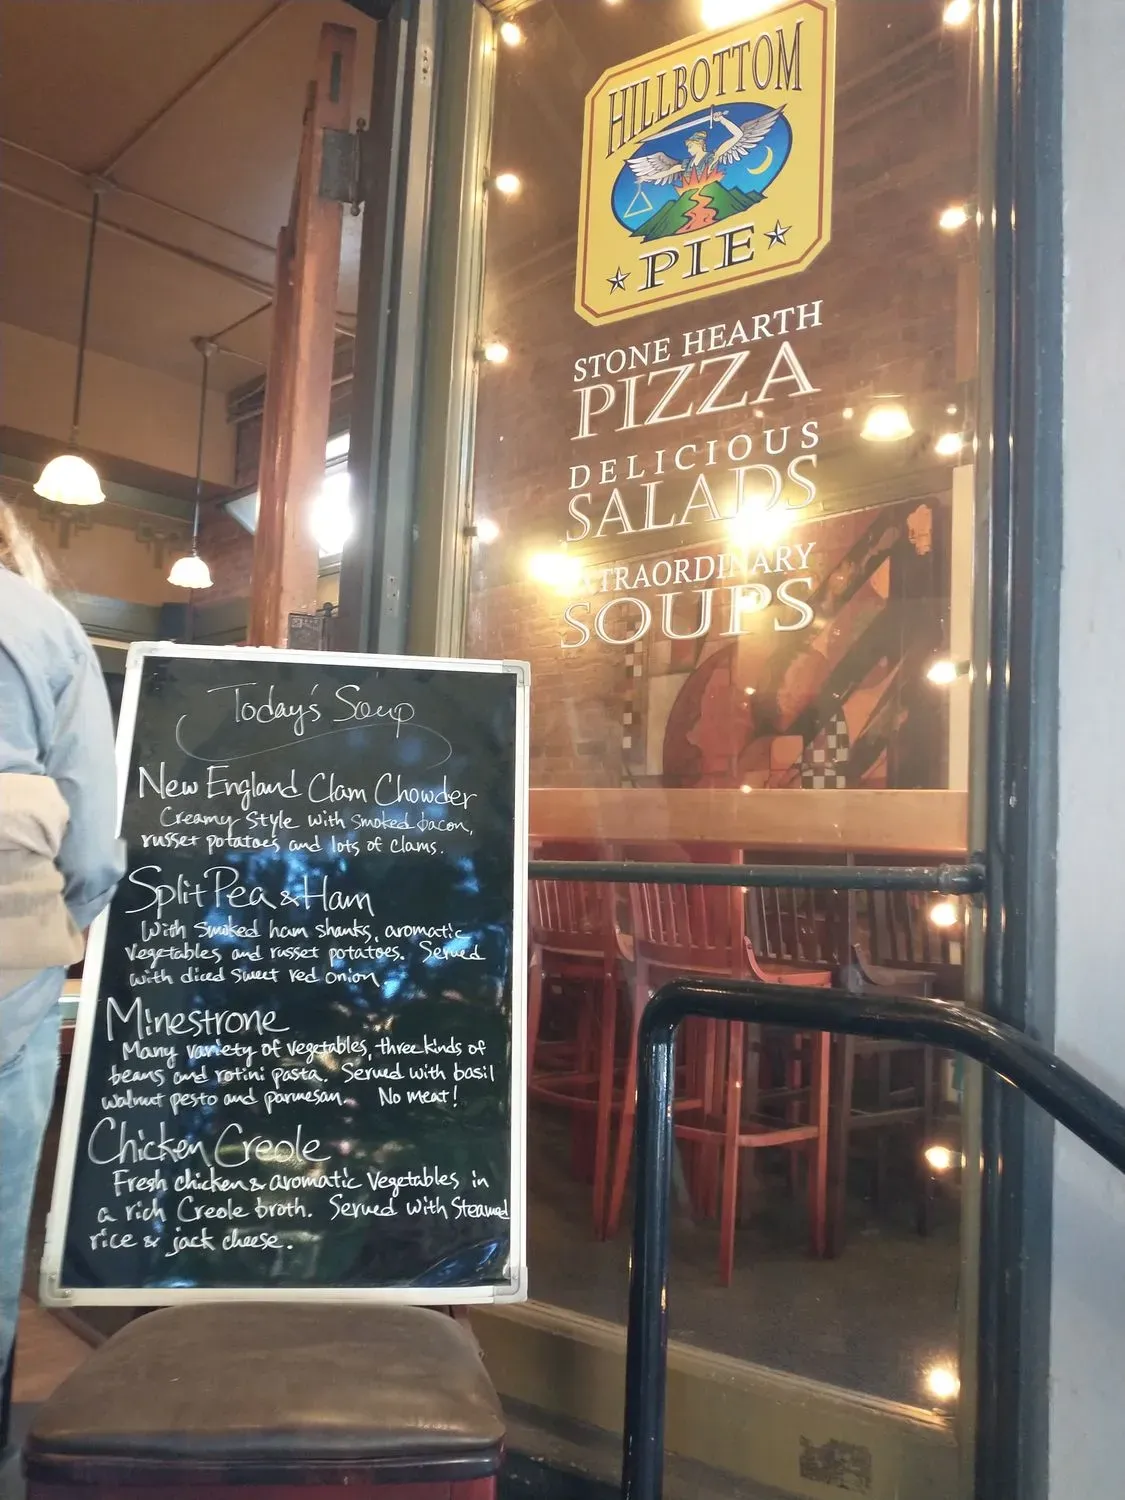 HILLBOTTOM
PIE
STONE HEARTH
PIZZA
DELICIOUS
SALADS
EXTRAORDINARY
SOUPS
Today's Soup
New England Clam Chowder
Creamy Style with smoked bacon,
russet potatoes and lots of clams.
Split Pea & Ham
With smoked ham shanks, aromatic
vegetables and russet potatoes. Served
with diced sweet red onion.
Minestrone
Many variety of vegetables, three kinds of
beans and rotini pasta. Served with basil
walnut pesto and parmesan. No meat!
Chicken Creole
Fresh chicken & aromatic vegetables in
a rich Creole broth. Served with Steamed
rice & jack cheese.